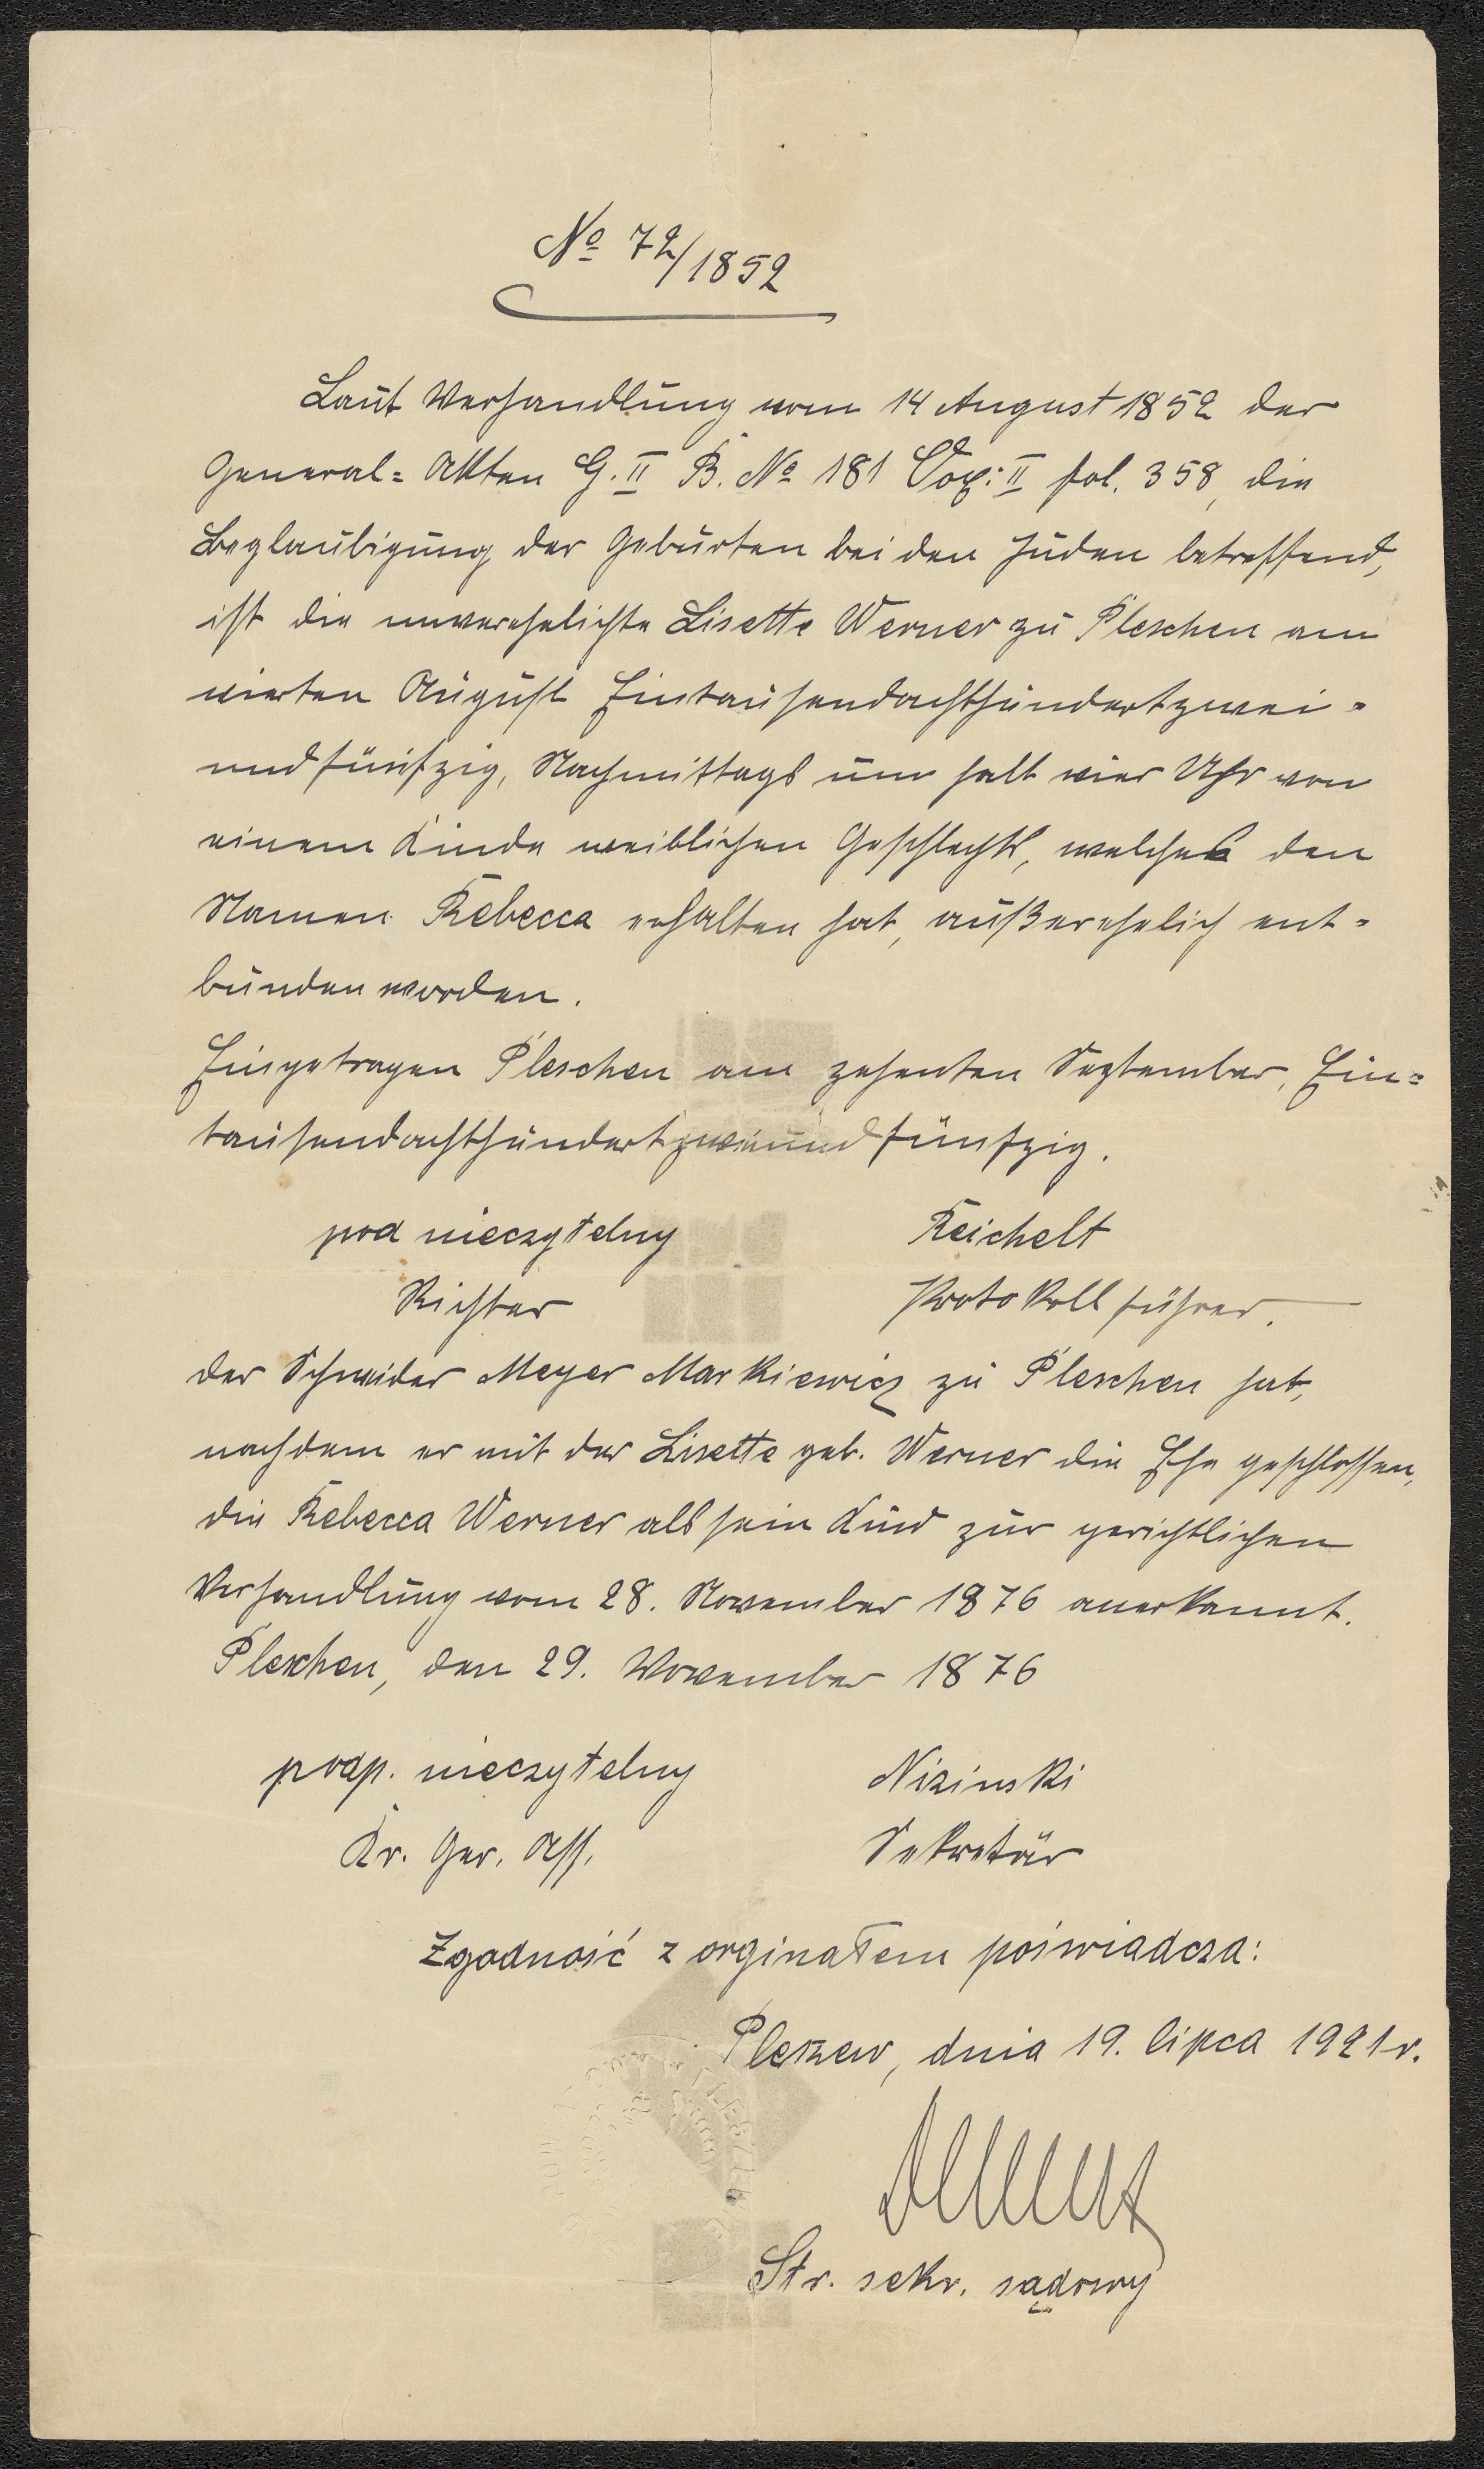 No 72/1852
Laut Verhandlung vom 14 August 1852 der
General= Akten G. II B. No 181 Vox: II fol. 358, die
Beglaubigung der Geburten bei den Juden betreffend,
ist die unverehelichte Lisette Werner zu Pleschen am
vierten August Eintausendachthundertzwei=
und fünfzig, Nachmittags um halb vier Uhr von
einem Kinde weiblichen Geschlechts, welches den
Namen Rebecca erhalten hat, außerehelich ent=
bunden worden.
Eingetragen Pleschen am zehenten September, Ein=
tausendachthundertzweiundfünfzig.
pod nieczytelny Reichelt
Richter Protokollführer.
der Schneider Meyer Markiewicz zu Pleschen hat,
nachdem er mit der Lisette geb. Werner die Ehe geschlossen,
die Rebecca Werner als sein Kind zur gerichtlichen
Verhandlung vom 28. November 1876 anerkannt.
Pleschen, den 29. November 1876
podp. nieczytelny Nizinski
Kr. Ger. Ass. Sekretär
Zgodność z orginałem poświadcza:
Pleszew, dnia 19. lipca 1921 r.
Str. sekr. sądowy